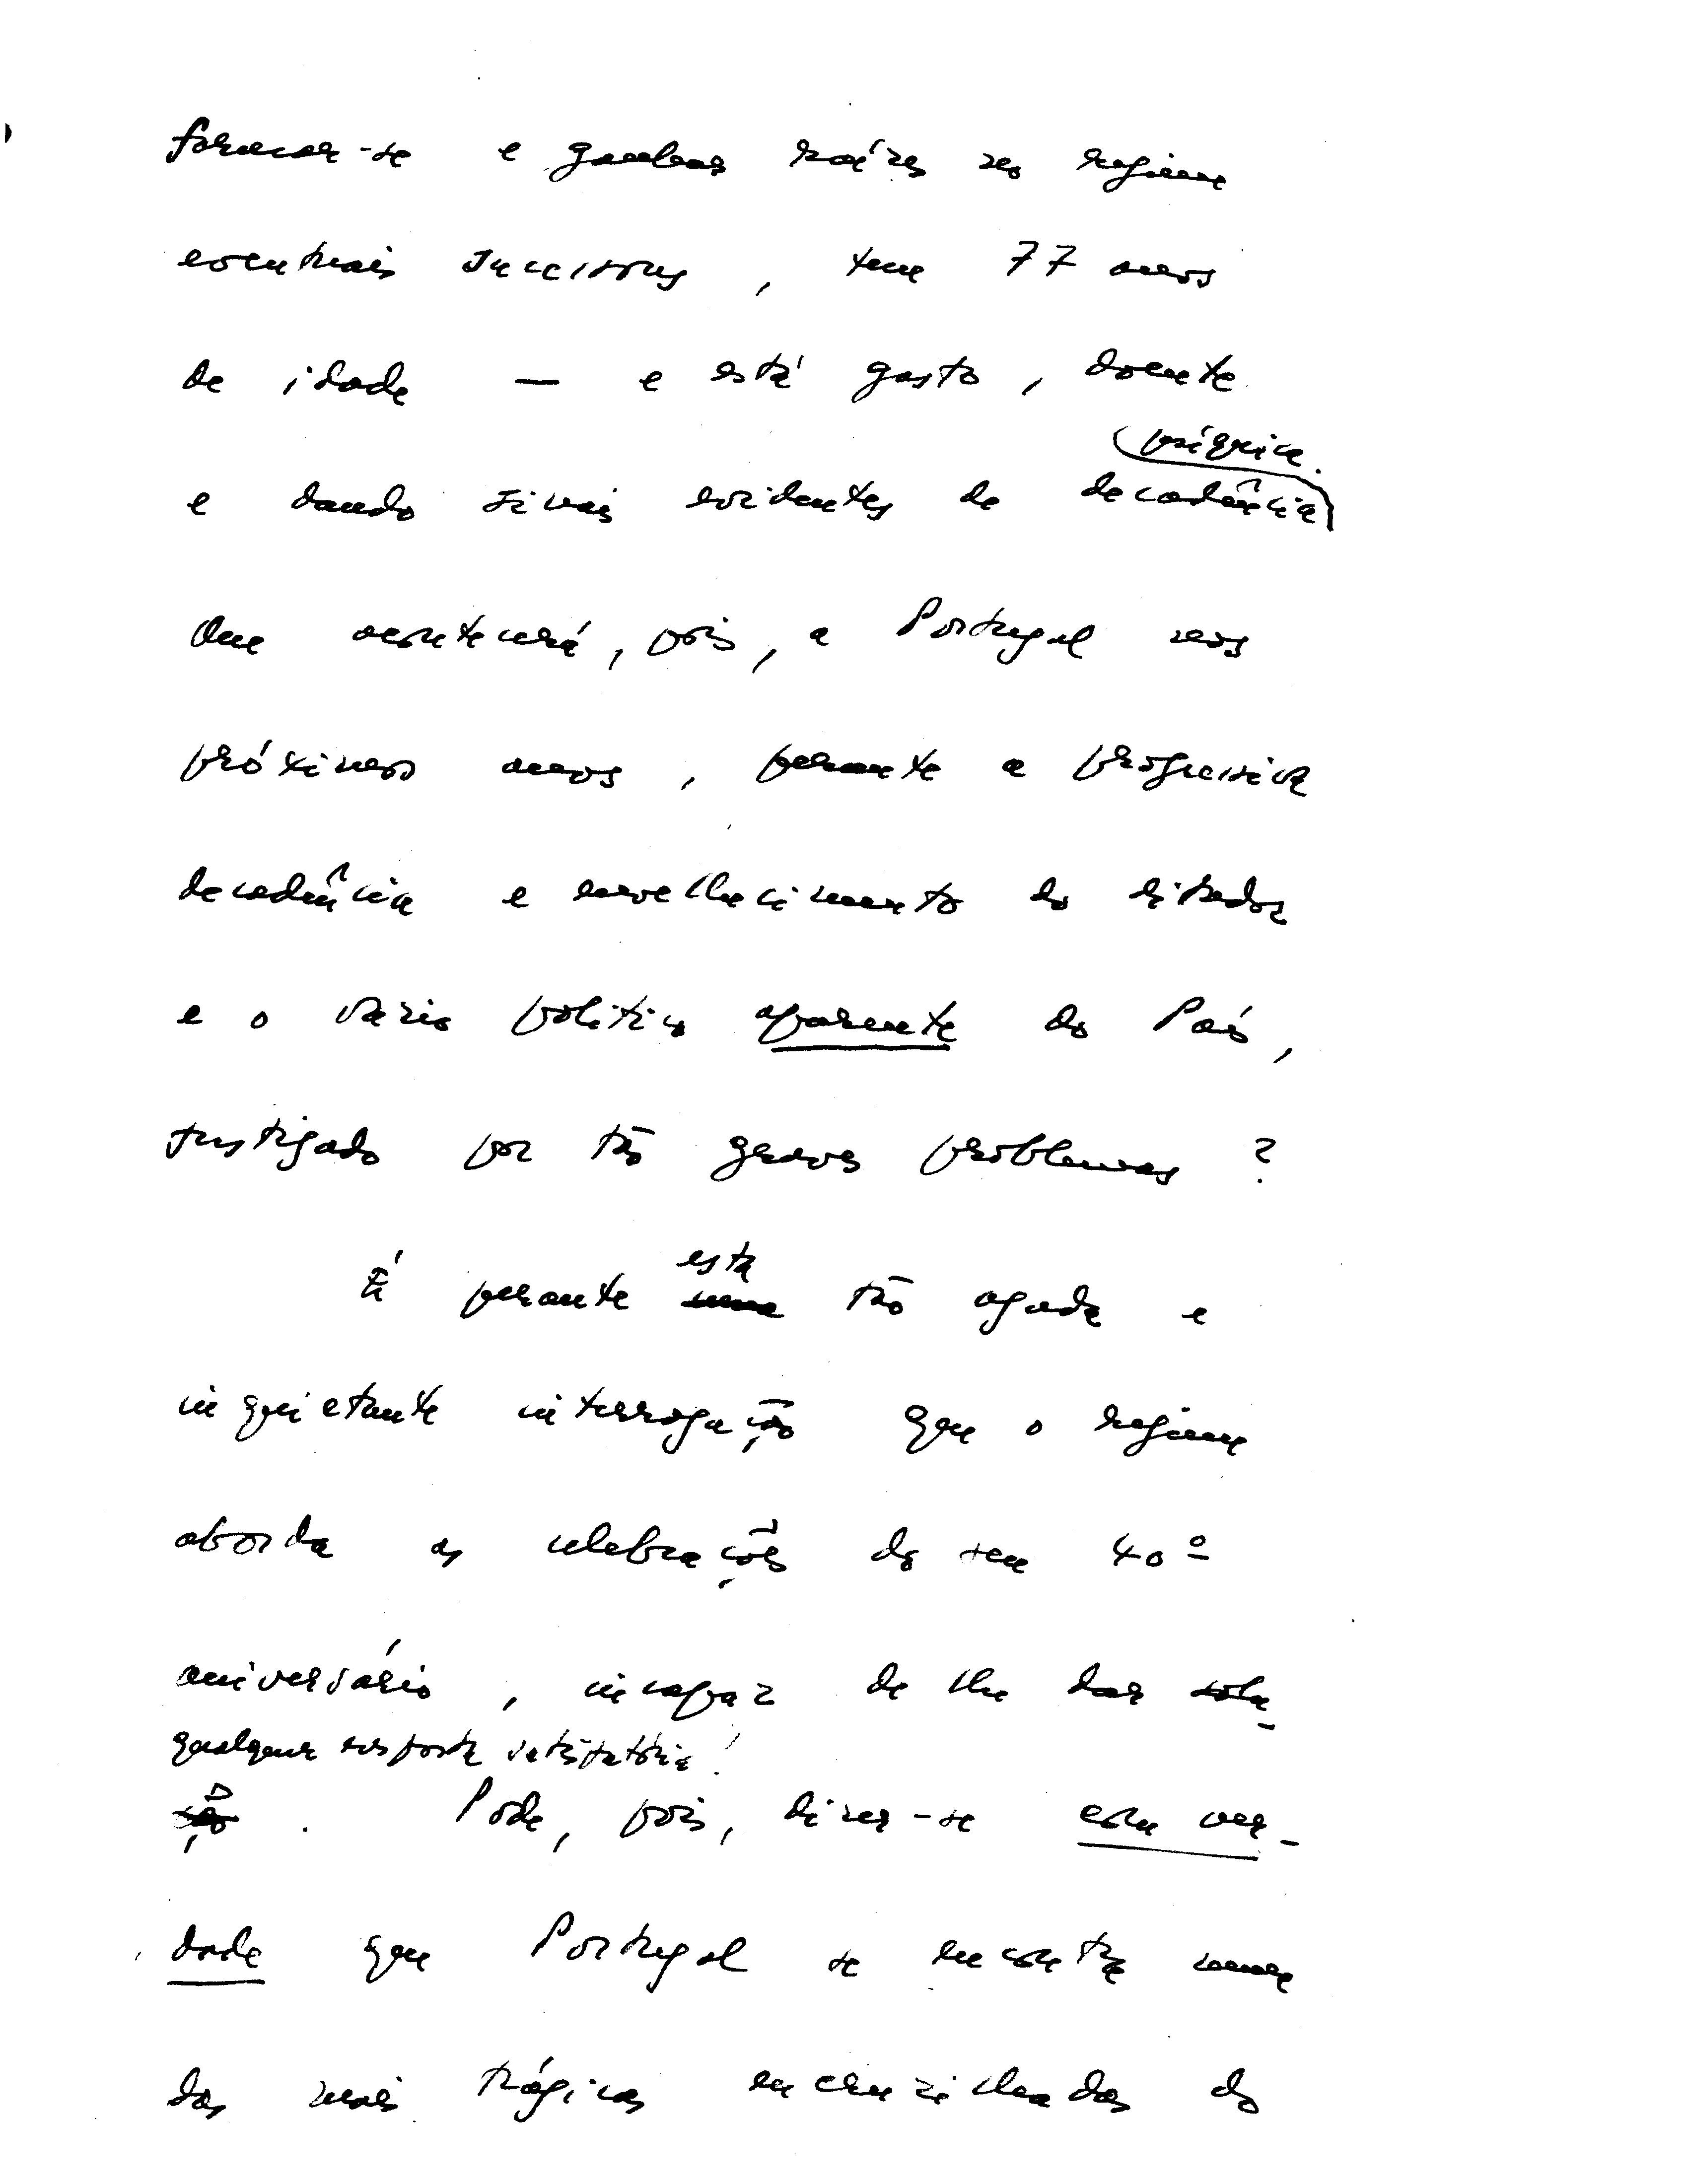 formar-se e ganhar raízes no regime
eventuais sucessores, tem 77 anos
de idade — e está gasto, doente
e dando sinais evidentes de decadência
psíquica.
Que acontecerá, pois, a Portugal nos
próximos anos, perante a progressiva
decadência e envelhecimento do ditador
e o vazio político aparente do País,
fustigado por tão graves problemas?
É perante esta tão aguda e
inquietante interrogação que o regime
aborda as celebrações do seu 40º
aniversário, incapaz de lhe dar solu-
qualquer resposta satisfatória!
ção. Pode, pois, dizer-se com ver-
dade que Portugal se encontra numa
das mais trágicas encruzilhadas do